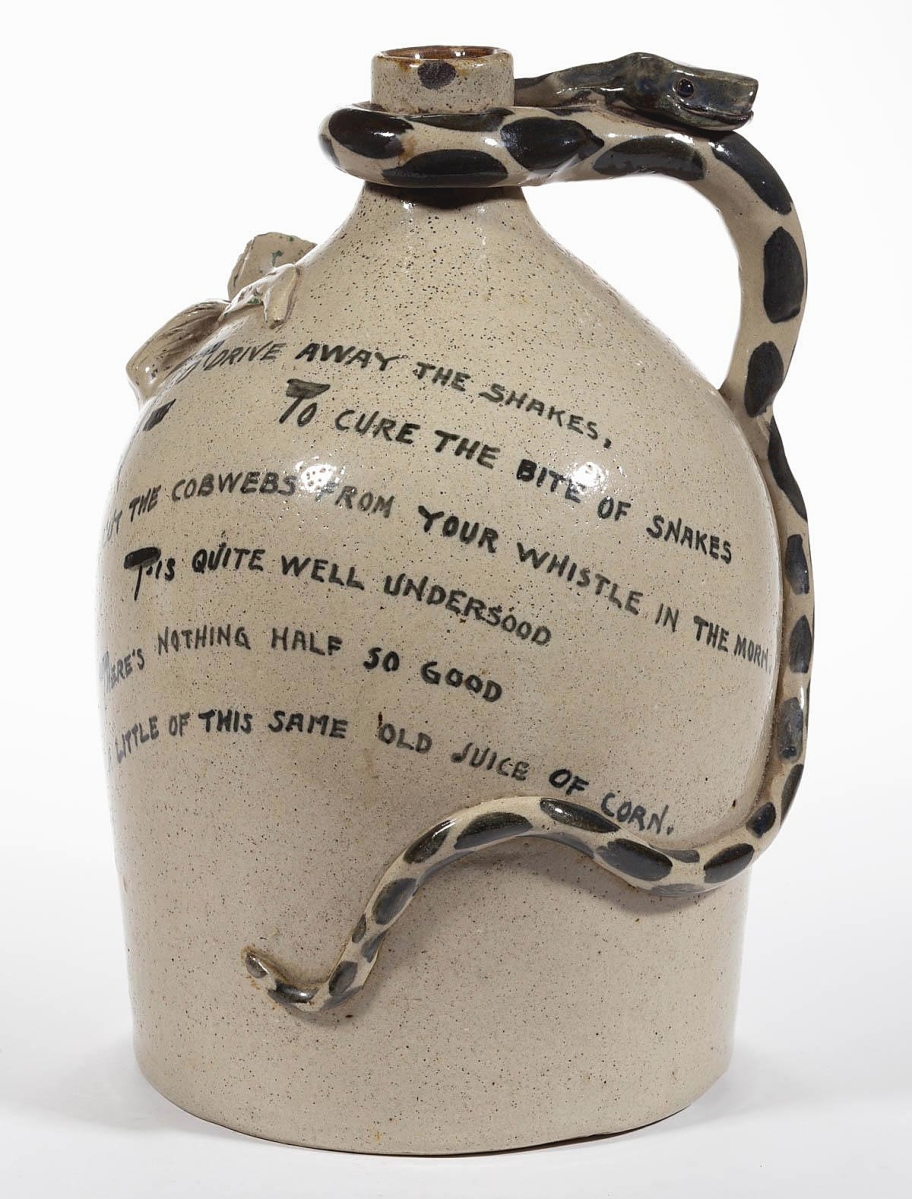 DRIVE AWAY THE SHAKES,
TO CURE THE BITE OF SNAKES
THE COBWEBS FROM YOUR WHISTLE IN THE MORN
T'IS QUITE WELL UNDERSOOD
THERE'S NOTHING HALF SO GOOD
LITTLE OF THIS SAME OLD JUICE OF CORN.